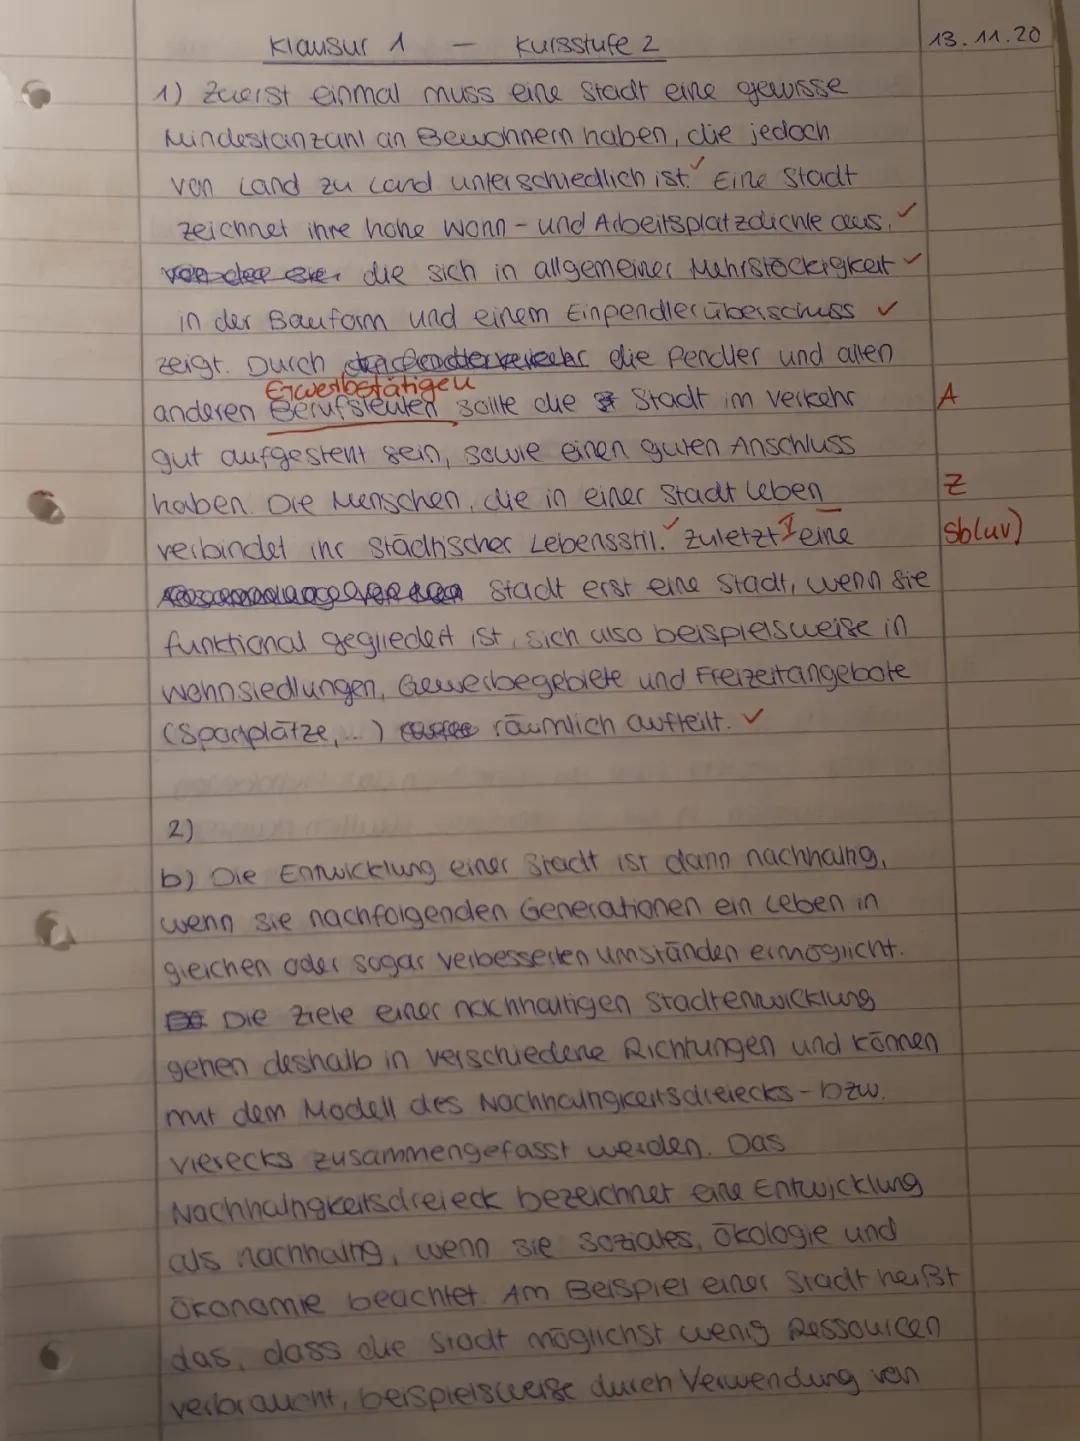 Klausur 1 — Kursstufe 2 13.11.20
1) Zuerst einmal muss eine Stadt eine gewisse
Mindestanzahl an Bewohnern haben, die jedoch
von Land zu Land unterschiedlich ist. ✓ Eine Stadt
zeichnet ihre hohe Wohn- und Arbeitsplatzdichte aus, ✓
die sich in allgemeiner Mehrstöckigkeit ✓
in der Bauform und einem Einpendlerüberschuss ✓
zeigt. Durch die Pendler und allen
Erwerbstätigen
anderen Berufsleuten sollte die Stadt im Verkehr A
gut aufgestellt sein, sowie einen guten Anschluss
haben. Die Menschen, die in einer Stadt leben Z
verbindet ihr städtischer Lebensstil. ✓ Zuletzt I eine Sb(uv)
Stadt erst eine Stadt, wenn sie
funktional gegliedert ist, sich also beispielsweise in
Wohnsiedlungen, Gewerbegebiete und Freizeitangebote
(Sportplätze, ...) räumlich aufteilt. ✓
2)
b) Die Entwicklung einer Stadt ist dann nachhaltig,
wenn sie nachfolgenden Generationen ein Leben in
gleichen oder sogar verbesserten Umständen ermöglicht.
Die Ziele einer nachhaltigen Stadtentwicklung
gehen deshalb in verschiedene Richtungen und können
mit dem Modell des Nachhaltigkeitsdreiecks - bzw.
vierecks zusammengefasst werden. Das
Nachhaltigkeitsdreieck bezeichnet eine Entwicklung
als nachhaltig, wenn sie Soziales, Ökologie und
Ökonomie beachtet. Am Beispiel einer Stadt heißt
das, dass die Stadt möglichst wenig Ressourcen
verbraucht, beispielsweise durch Verwendung von